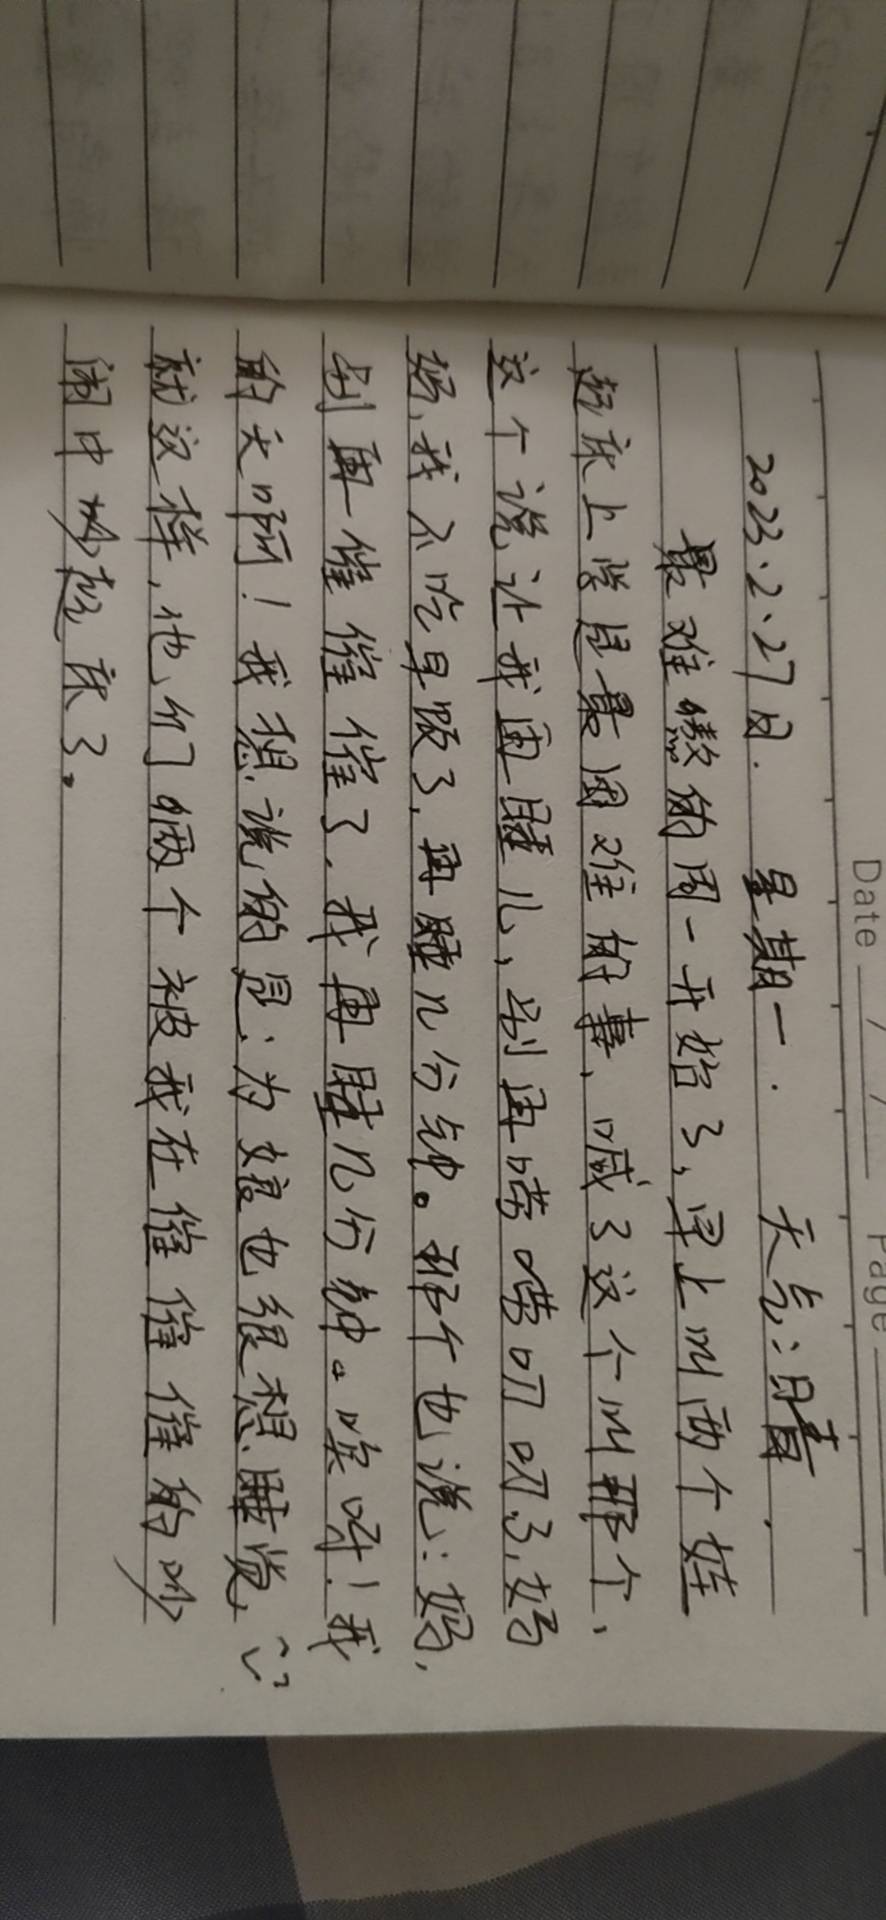 Date / / Page
2023.2.27日. 星期一. 天气:晴.
最难熬的周一开始了,早上叫两个娃
起床上学是最困难的事、喊了这个叫那个、
这个说让我再睡儿,别再唠唠叨叨了,妈
妈,我不吃早饭了,再睡几分钟。那个也说:妈,
别再催催催了,我再睡几分钟。唉呀!我
的天啊!我想说的是:为娘也很想睡觉、
就这样,他们俩个被我在催催催的吵
闹中吵起床了。